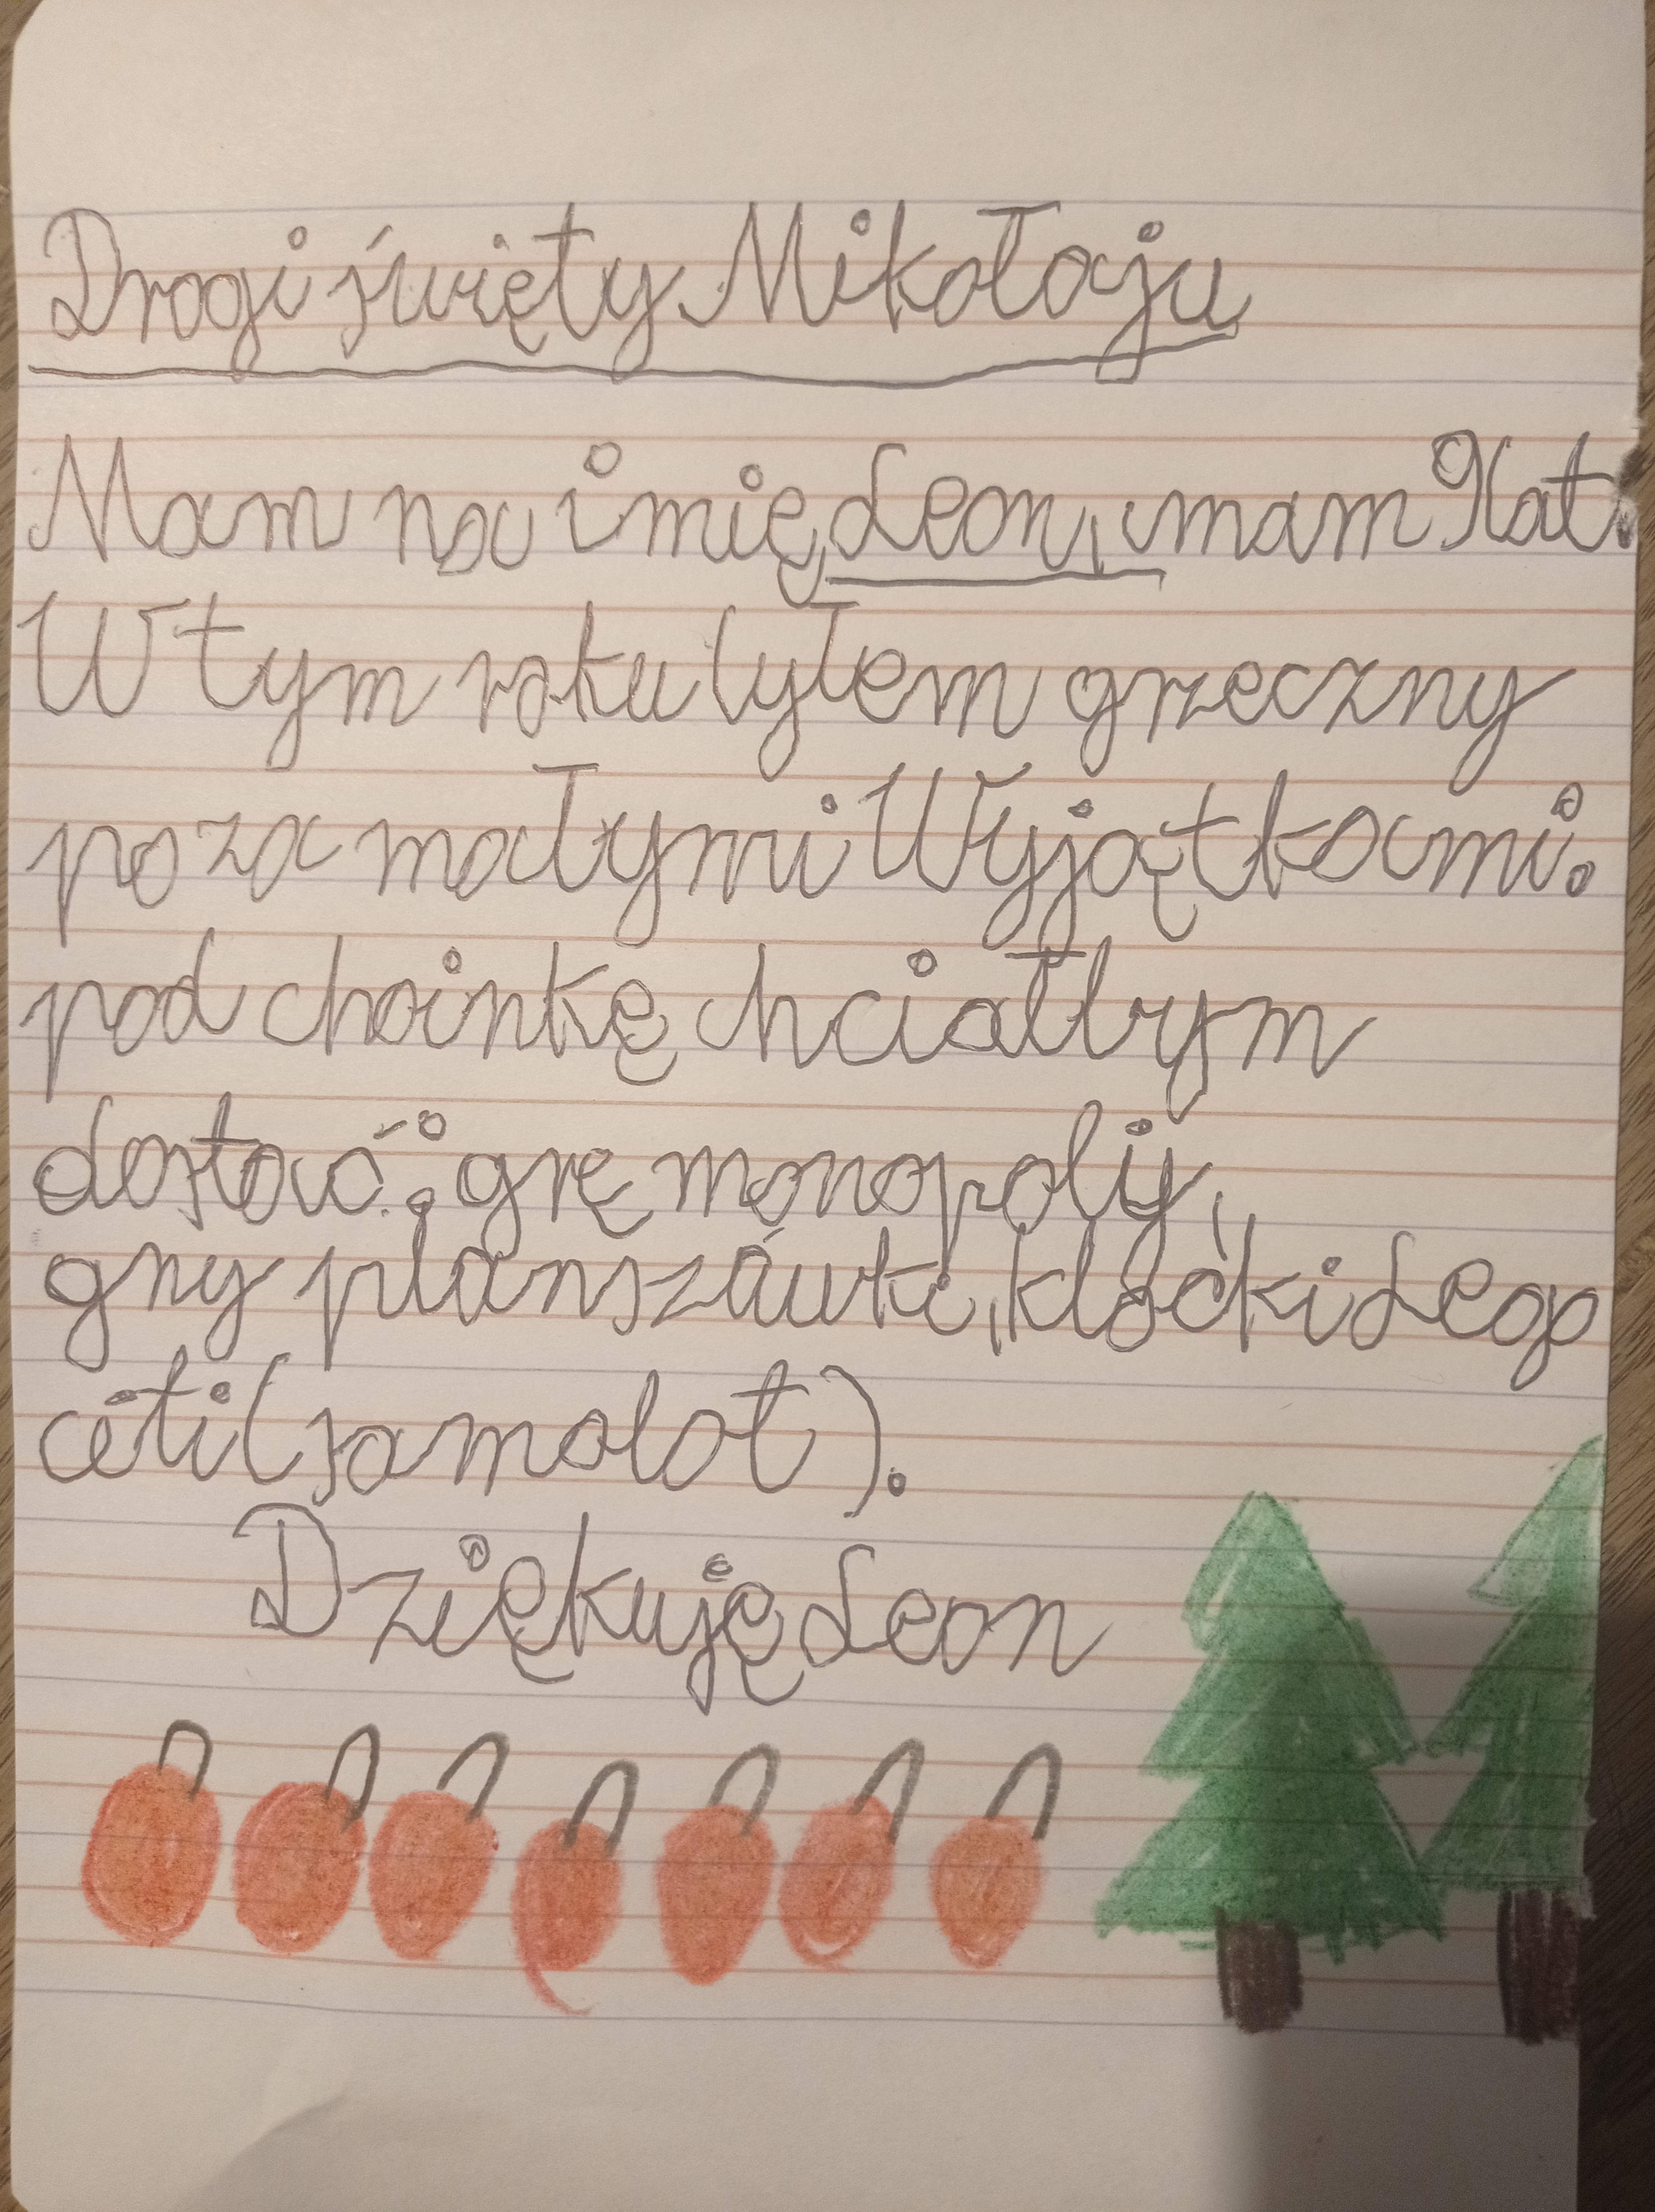 Drogi święty Mikołaju
Mam na imię Leon, mam 9lat.
W tym roku byłem grzeczny
poza małymi Wyjątkami.
pod choinkę chciałbym
dostać: grę monopolij,
gry planszáwki, klocki Lego
céti (samolot).
Dziękuję Leon